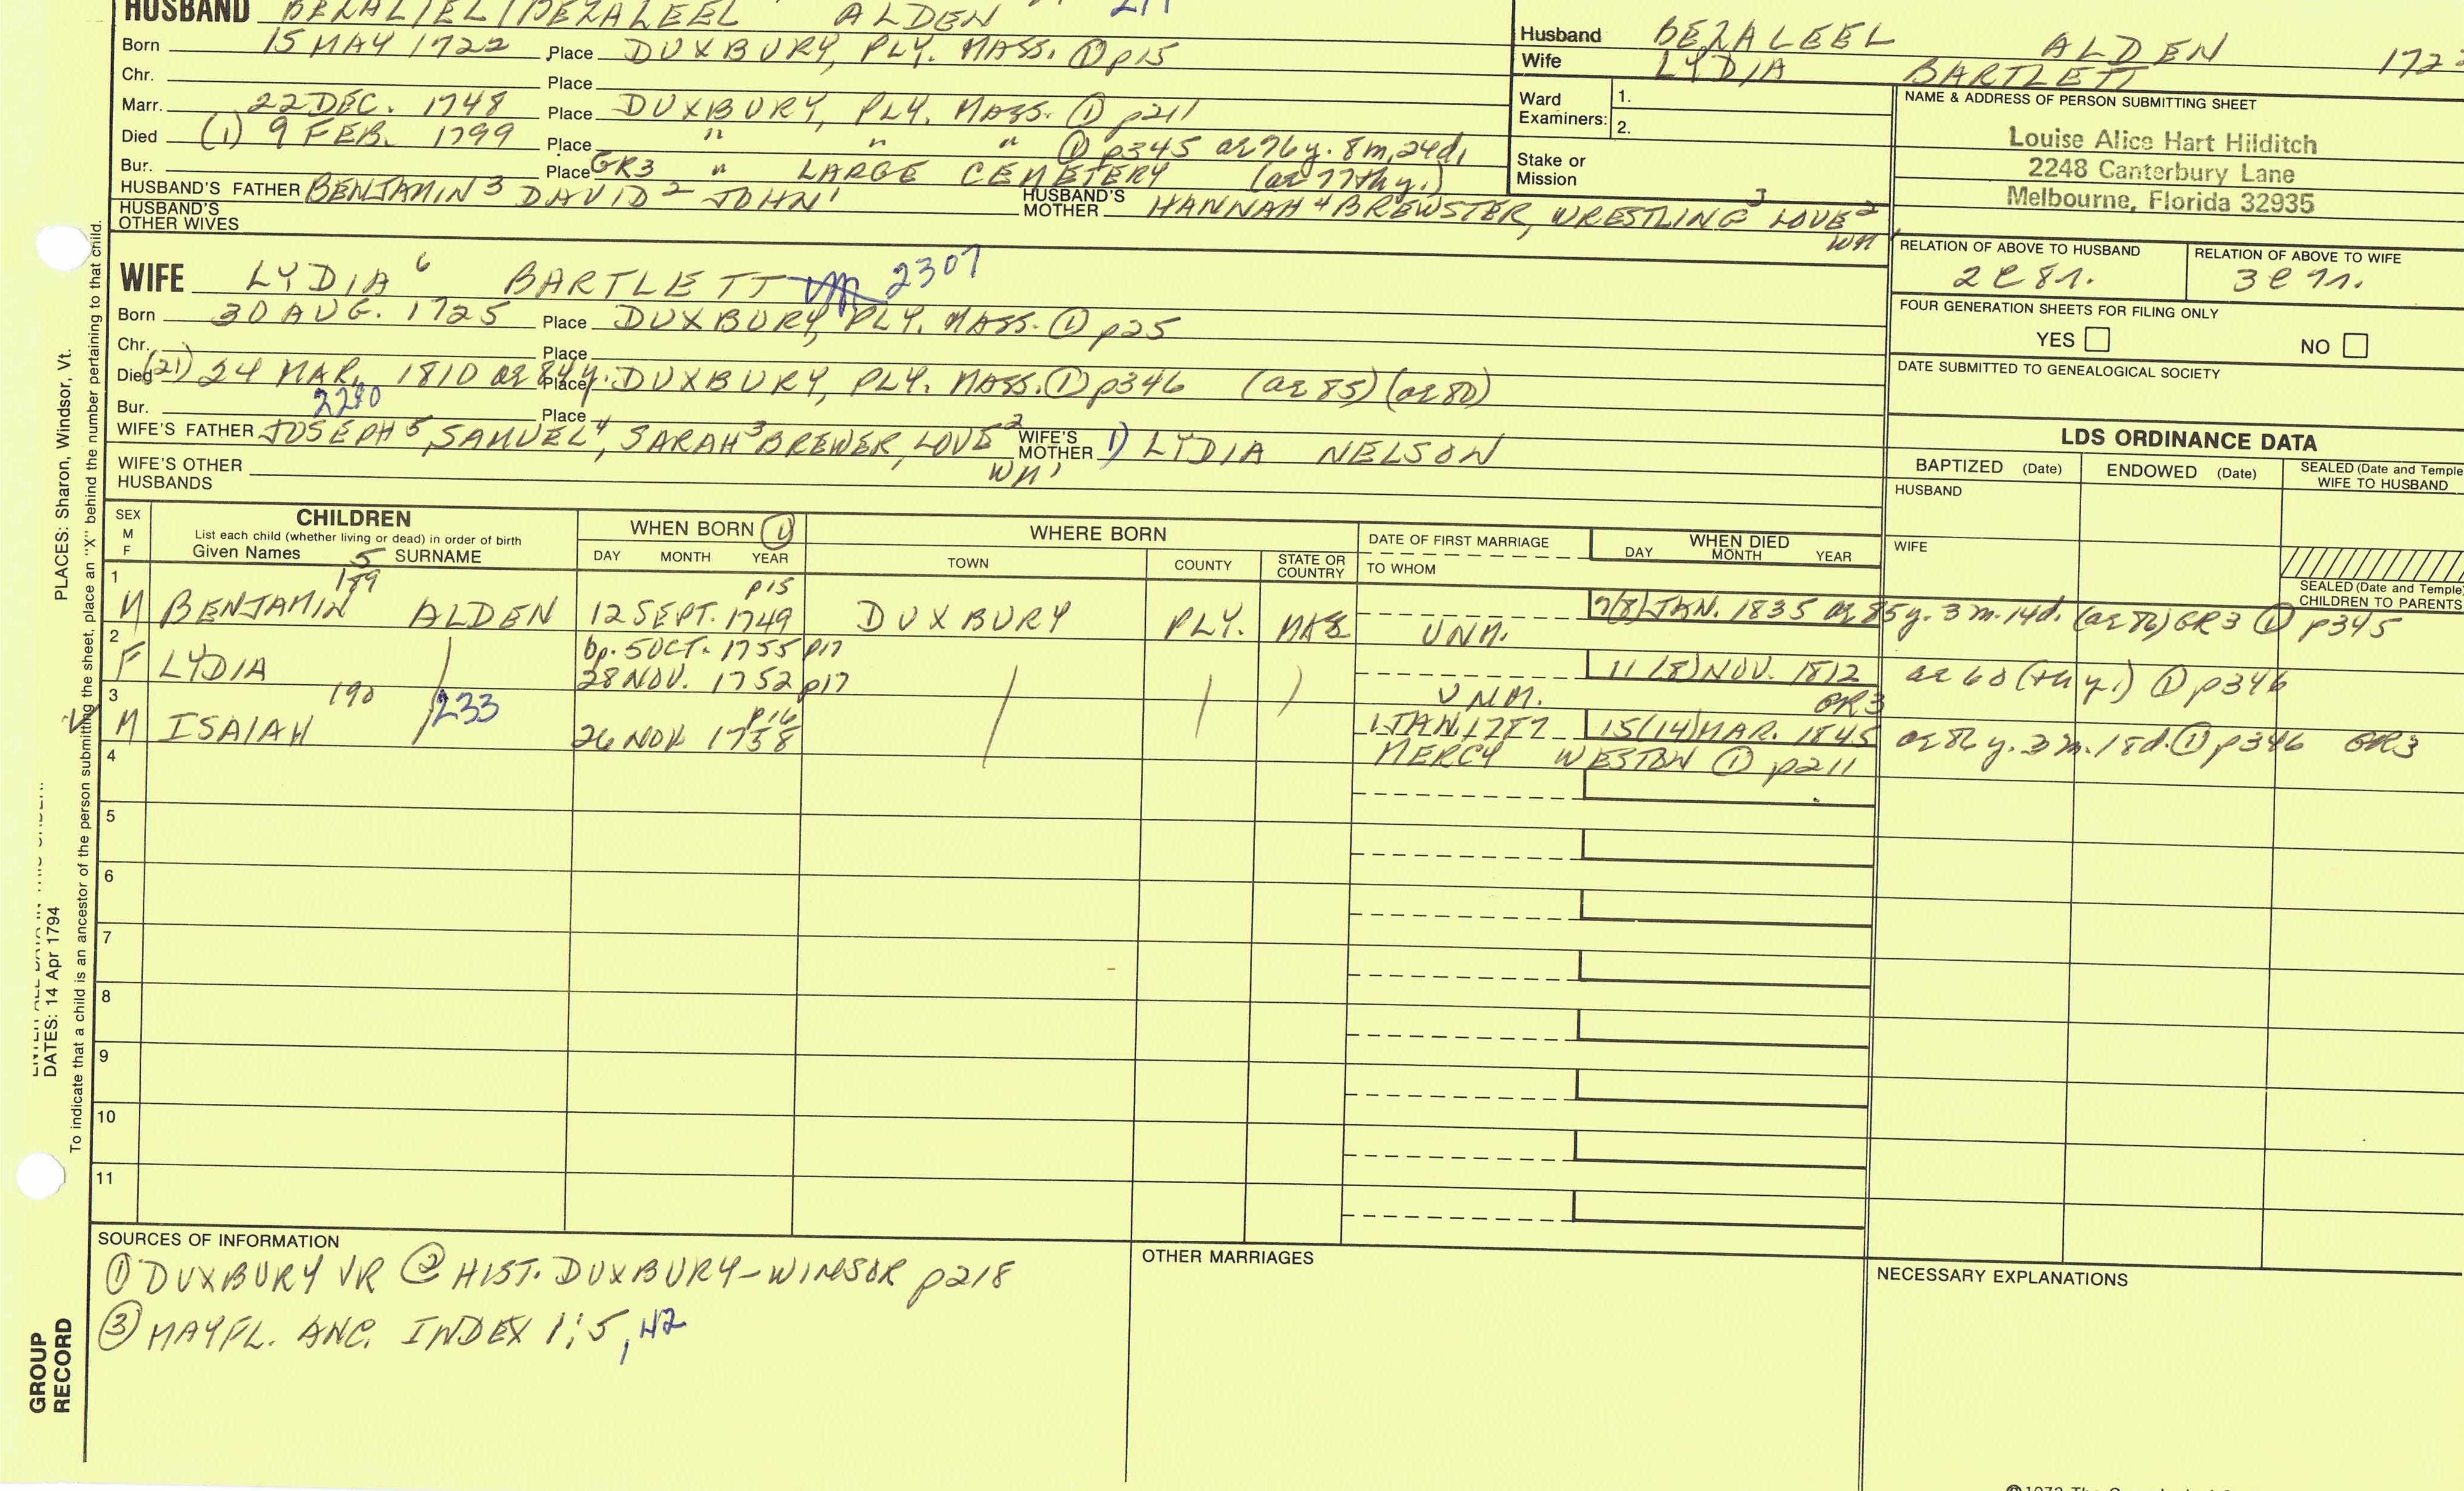 HUSBAND BEZALIEL/BEZALEEL ALDEN
Born 15 MAY 1722 Place DUXBURY, PLY. MASS. ① p15
Chr. Place
Marr. 22 DEC. 1748 Place DUXBURY, PLY. MASS. ① p211
Died (1) 9 FEB. 1799 Place " " " ① p345 ae 76y. 8m, 24d,
Bur. Place GR3 " LARGE CEMETERY (ae 77th y.)
HUSBAND'S FATHER BENJAMIN 3 DAVID 2 JOHN 1 HUSBAND'S MOTHER HANNAH 4 BREWSTER, WRESTLING 3 LOVE 2
HUSBAND'S OTHER WIVES
Wm 1
Husband BEZALEEL ALDEN 1722
Wife LYDIA BARTLETT
Ward Examiners: 1.
2.
Stake or Mission
NAME & ADDRESS OF PERSON SUBMITTING SHEET
Louise Alice Hart Hilditch
2248 Canterbury Lane
Melbourne, Florida 32935
RELATION OF ABOVE TO HUSBAND RELATION OF ABOVE TO WIFE
2C8r. 3C7r.
FOUR GENERATION SHEETS FOR FILING ONLY
YES NO
DATE SUBMITTED TO GENEALOGICAL SOCIETY
WIFE LYDIA 6 BARTLETT 2307
Born 30 AUG. 1725 Place DUXBURY, PLY. MASS. ① p25
Chr. Place
Died (21) 24 MAR, 1810 ae 84y. Place DUXBURY, PLY. MASS. ① p346 (ae 85) (ae 80)
Bur. 2280 Place
WIFE'S FATHER JOSEPH 5, SAMUEL 4, SARAH 3 BREWER, LOVE 2 WIFE'S MOTHER 1) LYDIA NELSON
Wm 1
WIFE'S OTHER HUSBANDS
LDS ORDINANCE DATA
BAPTIZED (Date) ENDOWED (Date) SEALED (Date and Temple) WIFE TO HUSBAND
HUSBAND
WIFE
SEALED (Date and Temple) CHILDREN TO PARENTS
SEX M F CHILDREN WHEN BORN ① WHERE BORN DATE OF FIRST MARRIAGE WHEN DIED
List each child (whether living or dead) in order of birth
Given Names 5 SURNAME DAY MONTH YEAR TOWN COUNTY STATE OR COUNTRY TO WHOM DAY MONTH YEAR
1 189 p15
M BENJAMIN ALDEN 12 SEPT. 1749 DUXBURY PLY. MASS UNM. 7/(8) JAN. 1835 ae 85y. 3m. 14d. (ae 86) GR3 ① p345
2 bp. 5 OCT. 1755 p17
F LYDIA 28 NOV. 1752 p17 UNM. 11 (8) NOV. 1812 GR3 ae 60 (th y.) ① p346
3 190 233 p16 1 JAN, 1787
M ISAIAH 26 NOV. 1758 15 (14) MAR. 1845 ae 86 y. 3 m. 18d. ① p346 GR3
4 MERCY WESTON ① p211
5
6
7
8
9
10
11
SOURCES OF INFORMATION
① DUXBURY VR ② HIST. DUXBURY-WINSOR p218
③ MAYFL. ANC. INDEX 1:5, 42
OTHER MARRIAGES
NECESSARY EXPLANATIONS
PLACES: Sharon, Windsor, Vt.
DATES: 14 Apr 1794
To indicate that a child is an ancestor of the person submitting the sheet, place an "X" behind the number pertaining to that child.
GROUP RECORD